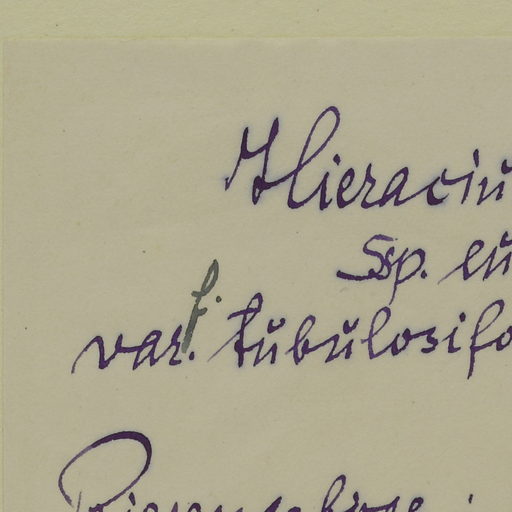 Hieraciu
Ssp. eu
f.
var. tubulosifo
Riesengebirge.